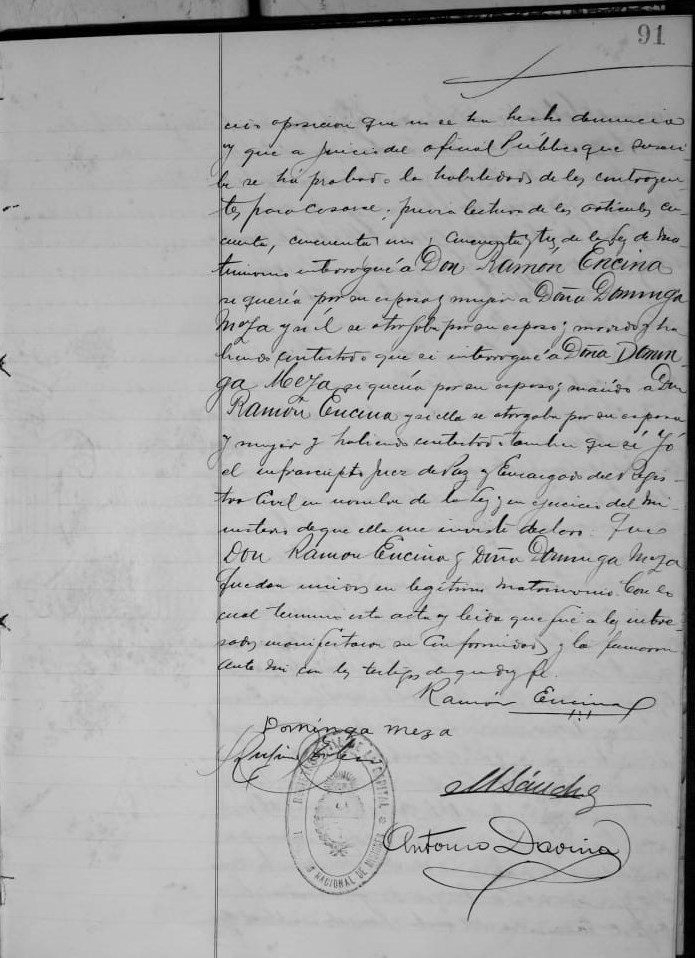 91
cion oposicion que no se ha hecho denuncia
y que a juicio del oficial Público que suscri-
be se há probado la habilidad de los contrayen-
tes para casarse; previa lectura de los articulos cin-
cuenta, cincuenta y uno y cincuenta y tres de la Ley de Ma-
trimonio interrogué a Don Ramón Encina
si quería por su esposa y mujer a Doña Dominga
Meza y si él se otorgaba por su esposo y marido y ha-
biendo contestado que si interrogué a Doña Domin-
ga Meza, si quería por su esposo y marido a Don
Ramón Encina y si ella se otorgaba por su esposa
y mujer y habiendo contestado tambien que sí Yo
el infrascripto Juez de Paz y Encargado del Regis-
tro Civil en nombre de la Ley y en ejercicio del Mi-
nisterio de que ella me inviste declaro: Que
Don Ramon Encina y Doña Dominga Meza
quedan unidos en legitimo Matrimonio. Con lo
cual termino este acta y leida que fué a los intere-
sados manifestaron su conformidad y la firmaron
ante mi con los testigos de que doy fé.
Ramón Encina
Dominga Meza
M Sánchez
Antonio Daviña
DE LA CAPITAL
NACIONAL DE